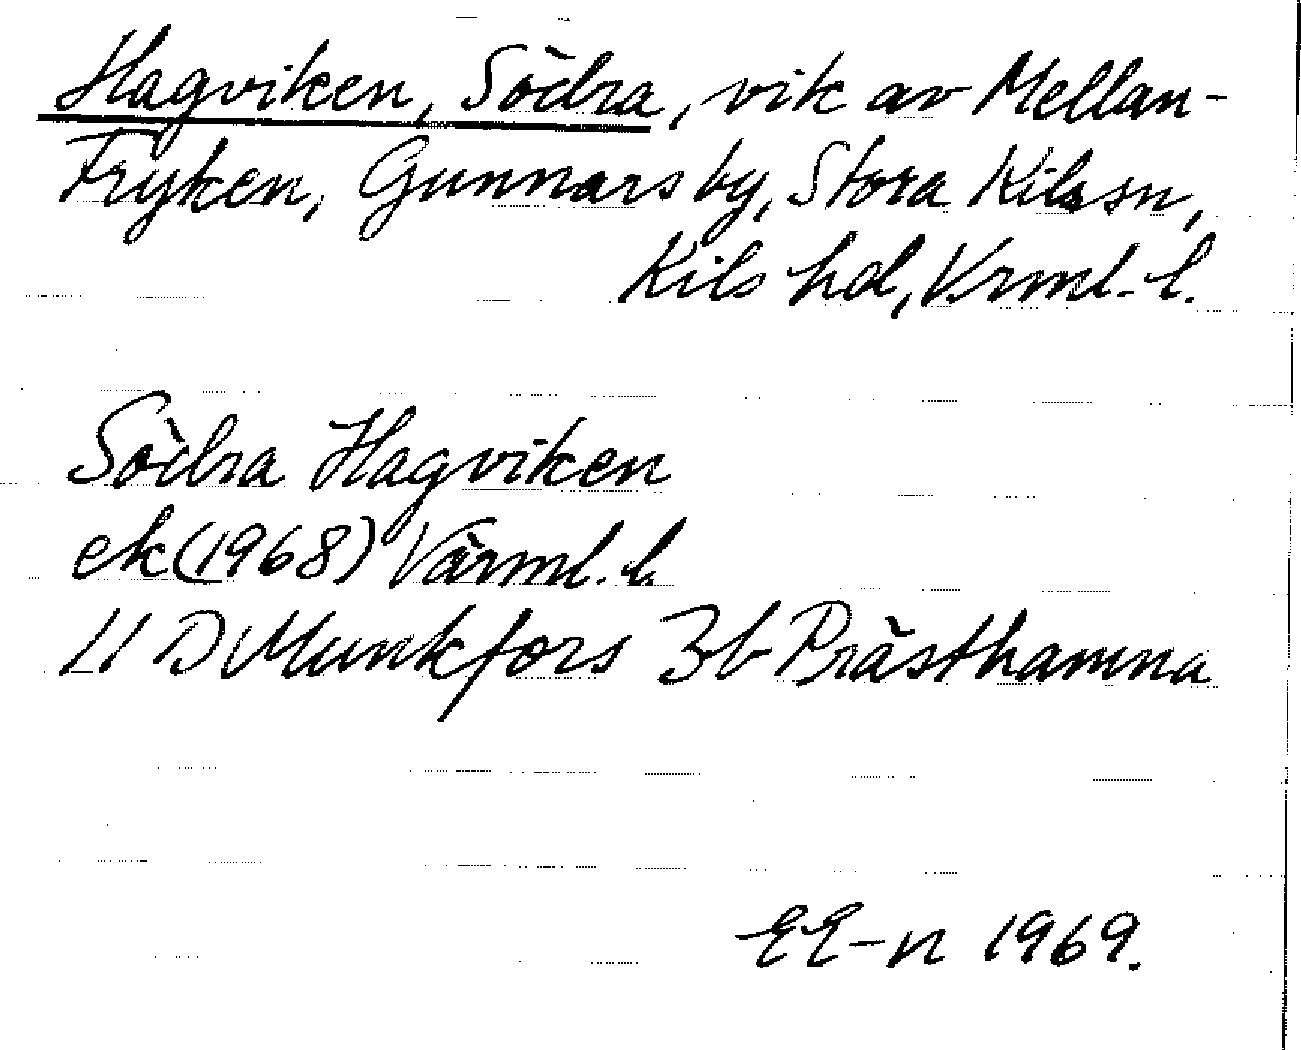 Hagviken, Södra, vik av Mellan-
Fryken, Gunnarsby, Stora Kils sn,
Kils hd, Vrml. l.
Södra Hagviken
ek (1968) Värml. l.
11 D Munkfors 3b Prästhamna
EE-n 1969.